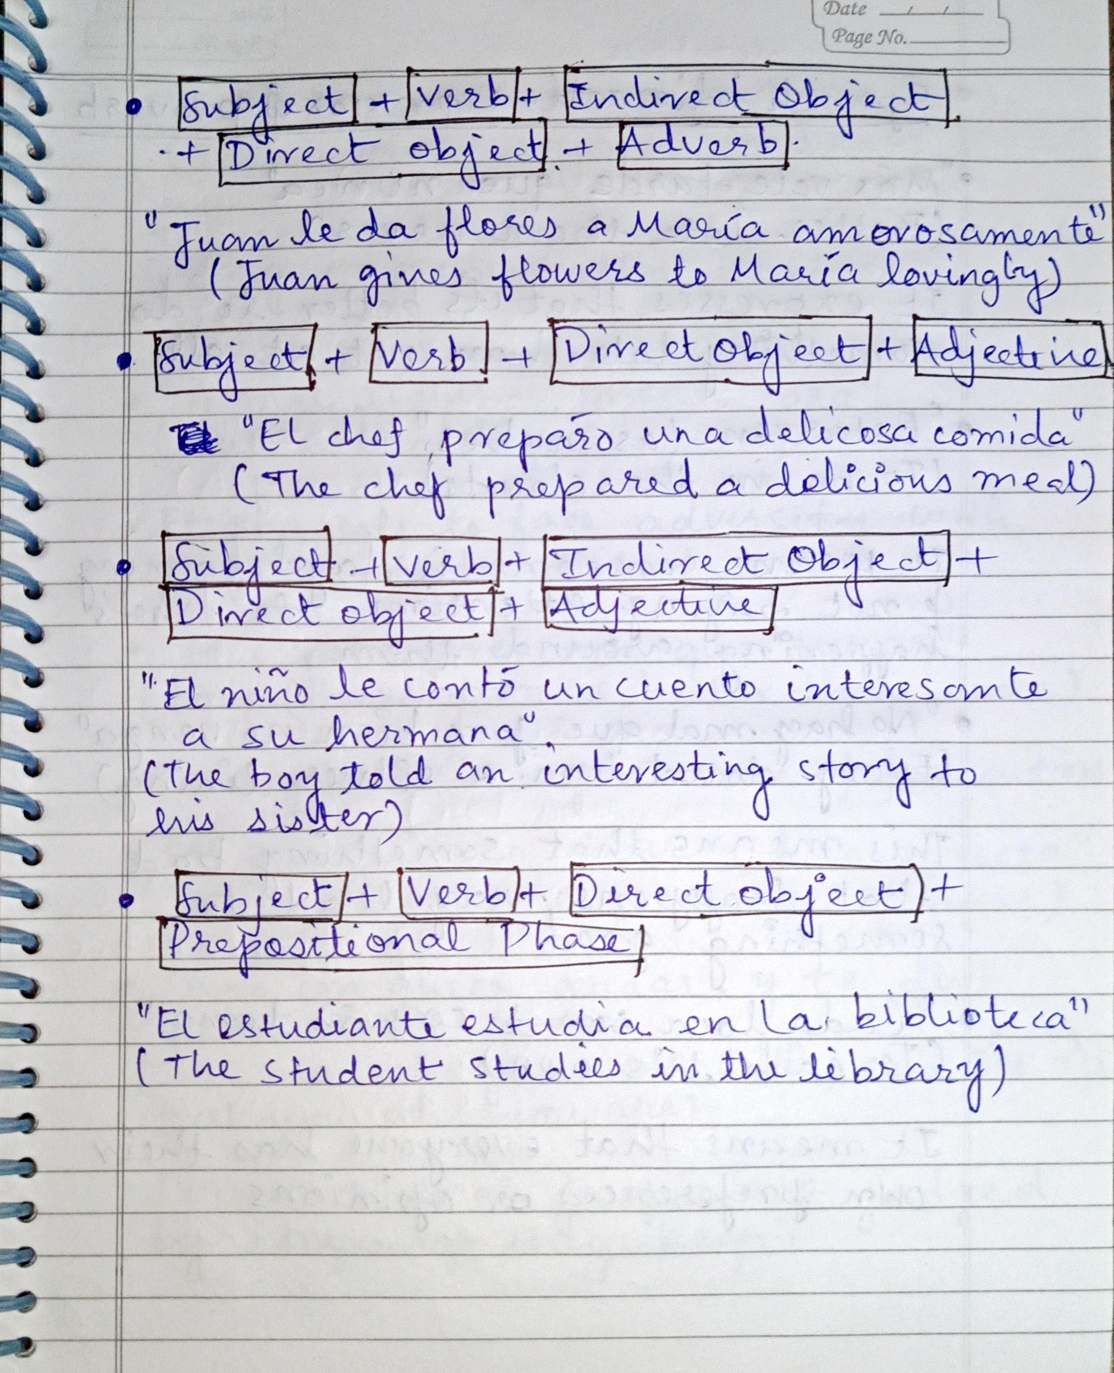 Date / /
Page No.
• Subject + Verb + Indirect Object
+ Direct object + Adverb.
"Juan le da flores a María amorosamente"
(Juan gives flowers to María lovingly)
• Subject + Verb + Direct Object + Adjective
"El chef preparó una delicosa comida"
(The chef prepared a delicious meal)
• Subject + Verb + Indirect Object +
Direct object + Adjective
"El niño le contó un cuento interesante
a su hermana"
(The boy told an interesting story to
his sister)
• Subject + Verb + Direct object +
Prepositional Phase
"El estudiante estudia en la biblioteca"
(The student studies in the library)